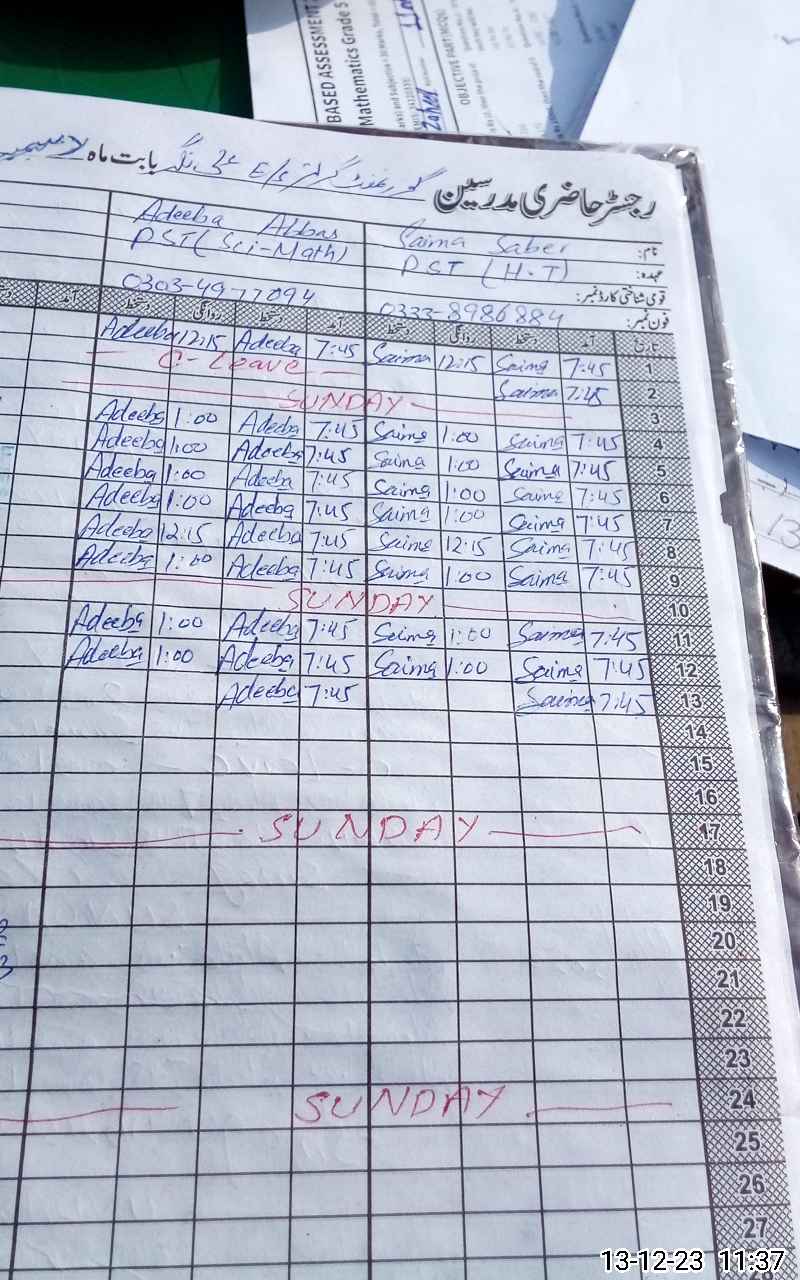 BASED ASSESSMENT
Mathematics Grade 5
OBJECTIVE PART(MCQs)
Zaheer
رجسٹر حاضری مدرسین گورنمنٹ گرلز E/S علی نگر بابت ماہ دسمبر
نام: Saima Saber Adeeba Abbas
عہدہ: PST (H.T) PST (Sci-Math)
قومی شناختی کارڈ نمبر:
فون نمبر: 0333-8986884 0303-4977094
تاریخ آمد دستخط روانگی دستخط آمد دستخط روانگی دستخط آمد
1 7:45 Saima 12:15 Saima 7:45 Adeeba 12:15 Adeeba
2 7:45 Saima C-Leave
3 SUNDAY
4 7:45 Saima 1:00 Saima 7:45 Adeeba 1:00 Adeeba
5 7:45 Saima 1:00 Saima 7:45 Adeeba 1:00 Adeeba
6 7:45 Saima 1:00 Saima 7:45 Adeeba 1:00 Adeeba
7 7:45 Saima 1:00 Saima 7:45 Adeeba 1:00 Adeeba
8 7:45 Saima 12:15 Saima 7:45 Adeeba 12:15 Adeeba
9 7:45 Saima 1:00 Saima 7:45 Adeeba 1:00 Adeeba
10 SUNDAY
11 7:45 Saima 1:00 Saima 7:45 Adeeba 1:00 Adeeba
12 7:45 Saima 1:00 Saima 7:45 Adeeba 1:00 Adeeba
13 7:45 Saima 7:45 Adeeba
14
15
16
17 SUNDAY
18
19
20
21
22
23
24 SUNDAY
25
26
27
13
13-12-23 11:37